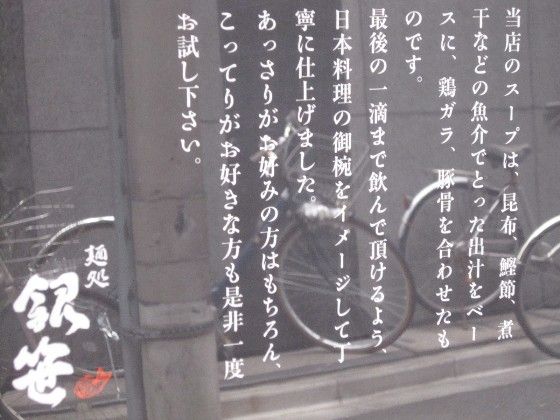 当店のスープは、昆布、鰹節、煮
干などの魚介でとった出汁をベー
スに、鶏ガラ、豚骨を合わせたも
のです。
最後の一滴まで飲んで頂けるよう、
日本料理の御椀をイメージして丁
寧に仕上げました。
あっさりがお好みの方はもちろん、
こってりがお好きな方も是非一度
お試し下さい。
麺処
銀笹